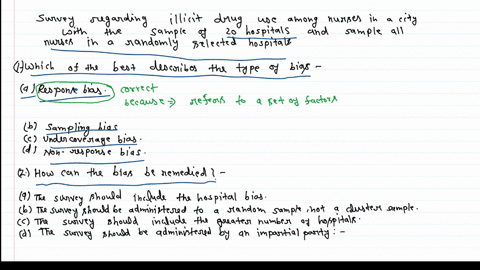 Survey regarding illicit drug use among nurses in a city
with the sample of 20 hospitals and sample all
nurses in a randomly selected hospitals
(1) Which of the best describes the type of bias -
(a) Response bias. correct
because → refers to a set of factors
(b) Sampling bias
(c) Undercoverage bias.
(d) Non-response bias.
(2) How can the bias be remedied? -
(a) The survey should include the hospital bias.
(b) The survey should be administered to a random sample, not a cluster sample.
(c) The survey should include the greater number of hospitals.
(d) The survey should be administered by an impartial party: -